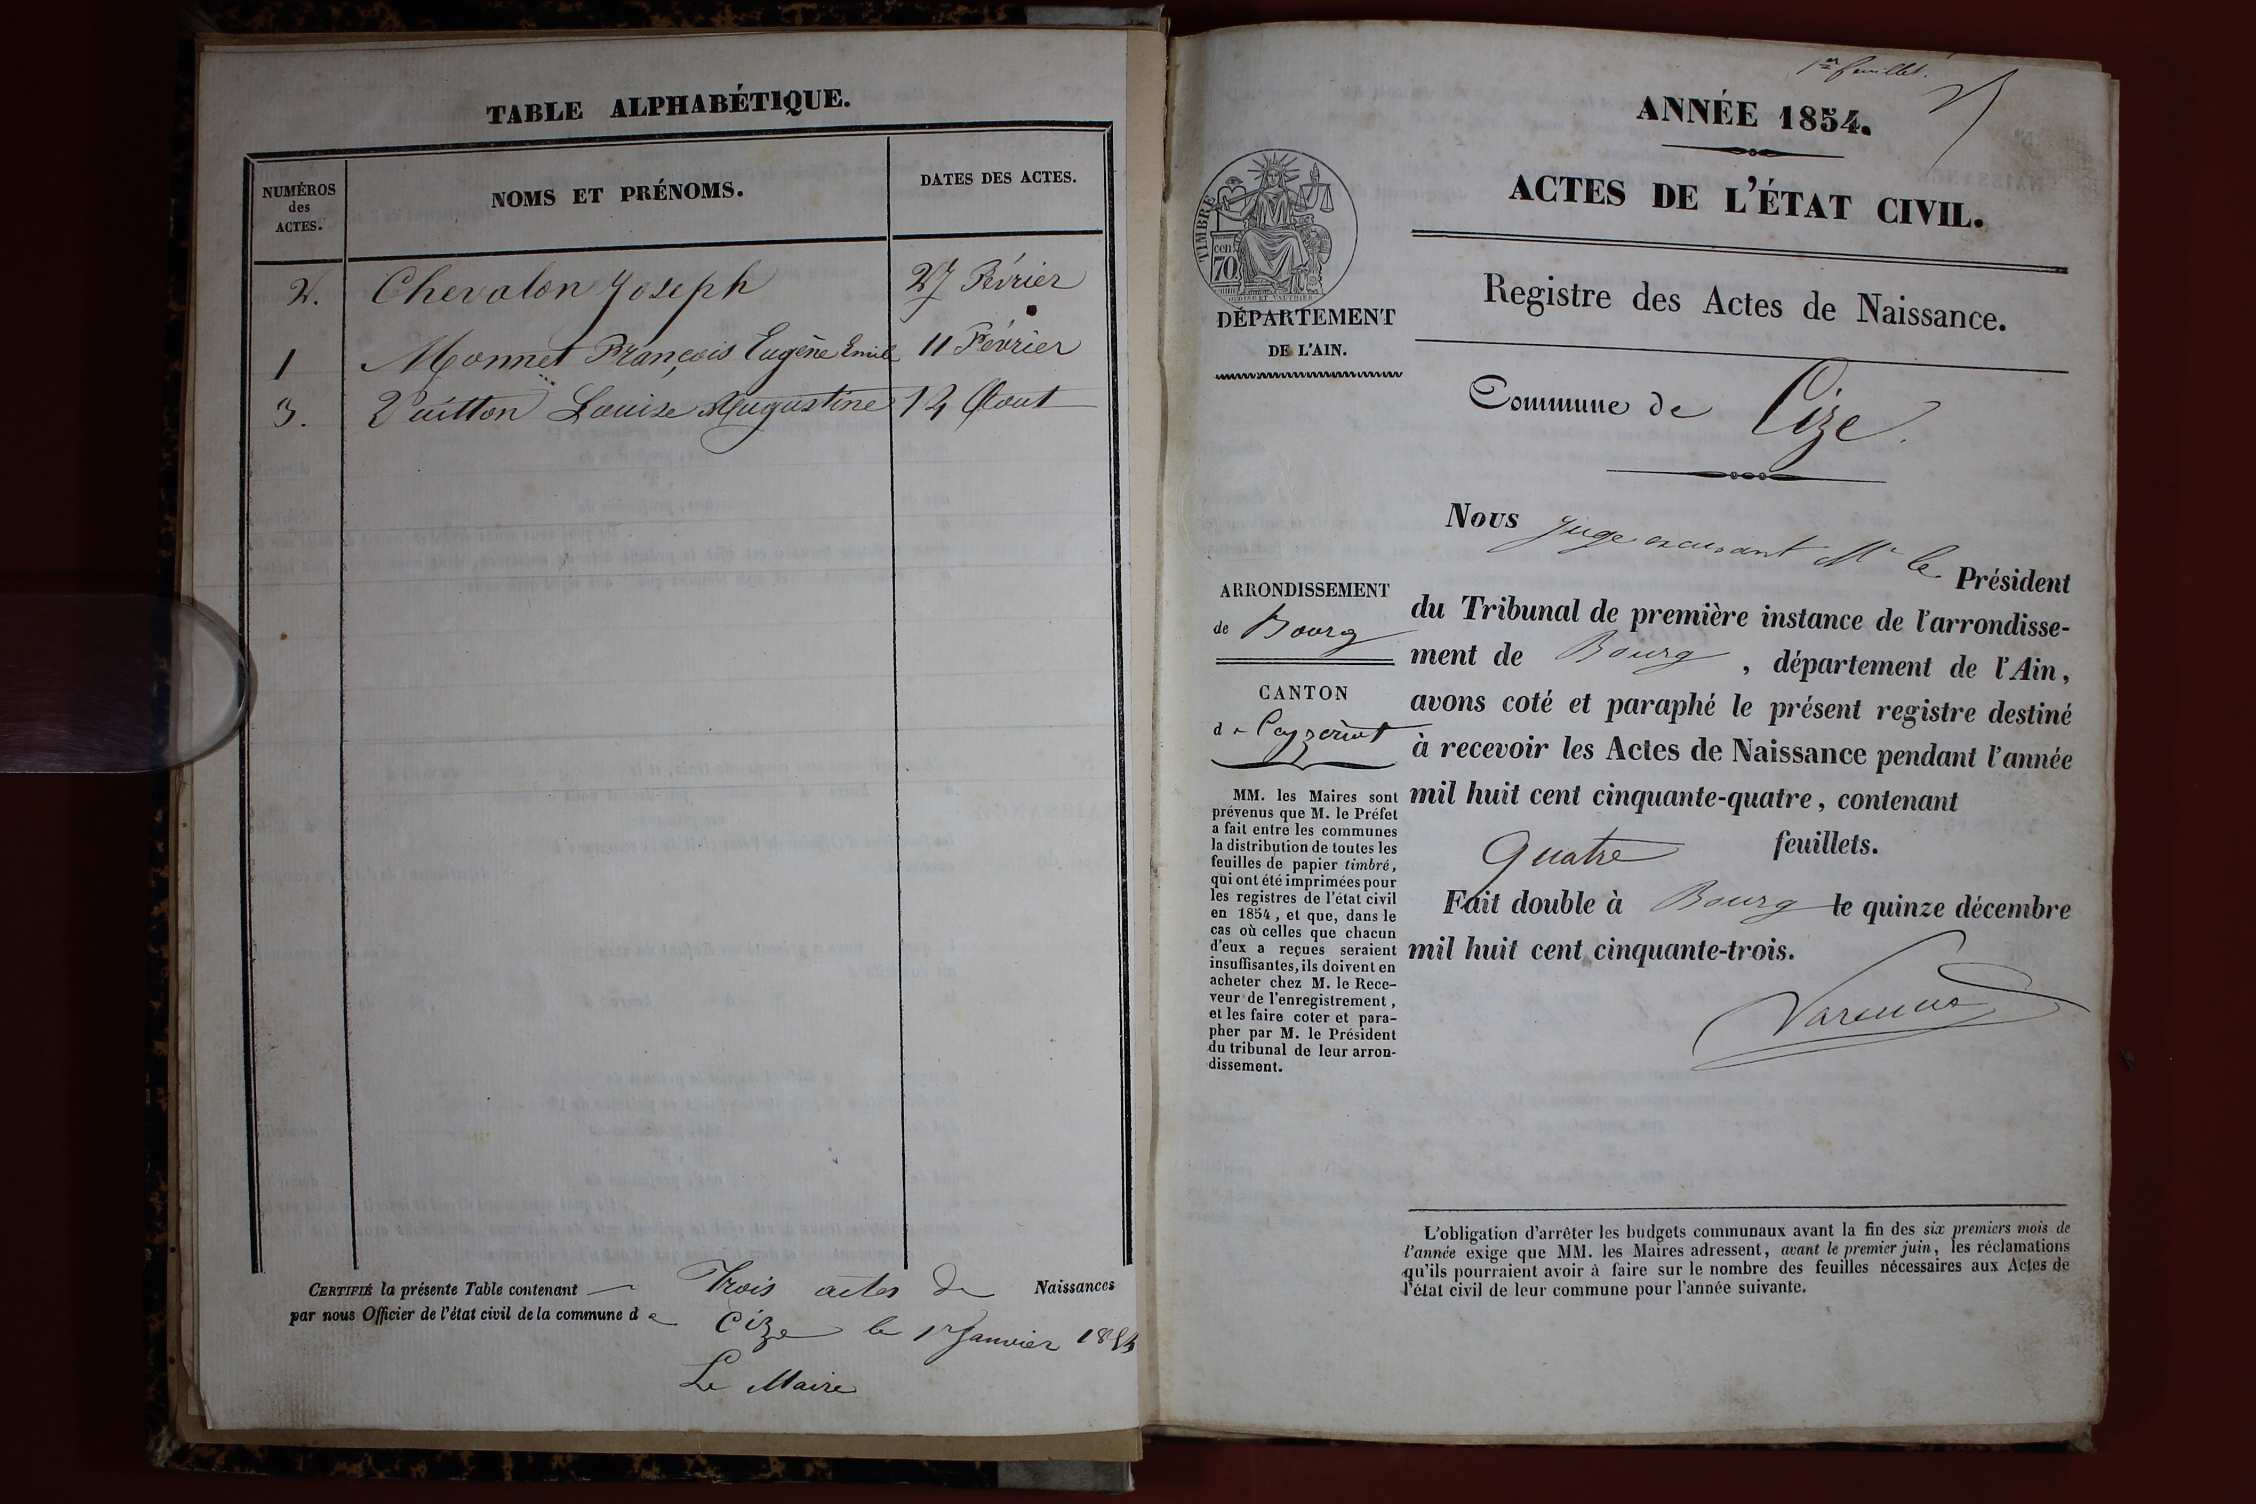 TABLE ALPHABÉTIQUE.
NUMÉROS
des
ACTES.
NOMS ET PRÉNOMS.
DATES DES ACTES.
2. Chevalon Joseph 27 Février
1 Monnet François Eugène Emile 11 Février
3. Vuitton Louise Augustine 12 Aout
CERTIFIÉ la présente Table contenant Trois actes de Naissances
par nous Officier de l'état civil de la commune de Cize le 1r Janvier 1854
Le Maire
1er feuillet.
ANNÉE 1854.
ACTES DE L'ÉTAT CIVIL.
Registre des Actes de Naissance.
TIMBRE
cen
70
DÉPARTEMENT
DE L'AIN.
Commune de Cize.
Nous Juge excusant Mr le Président
du Tribunal de première instance de l'arrondisse-
ment de Bourg, département de l'Ain,
avons coté et paraphé le présent registre destiné
à recevoir les Actes de Naissance pendant l'année
mil huit cent cinquante-quatre, contenant
Quatre feuillets.
Fait double à Bourg le quinze décembre
mil huit cent cinquante-trois.
ARRONDISSEMENT
de Bourg
CANTON
de Ceyzériat
MM. les Maires sont
prévenus que M. le Préfet
a fait entre les communes
la distribution de toutes les
feuilles de papier timbré,
qui ont été imprimées pour
les registres de l'état civil
en 1854, et que, dans le
cas où celles que chacun
d'eux a reçues seraient
insuffisantes, ils doivent en
acheter chez M. le Rece-
veur de l'enregistrement,
et les faire coter et para-
pher par M. le Président
du tribunal de leur arron-
dissement.
L'obligation d'arrêter les budgets communaux avant la fin des six premiers mois de
l'année exige que MM. les Maires adressent, avant le premier juin, les réclamations
qu'ils pourraient avoir à faire sur le nombre des feuilles nécessaires aux Actes de
l'état civil de leur commune pour l'année suivante.